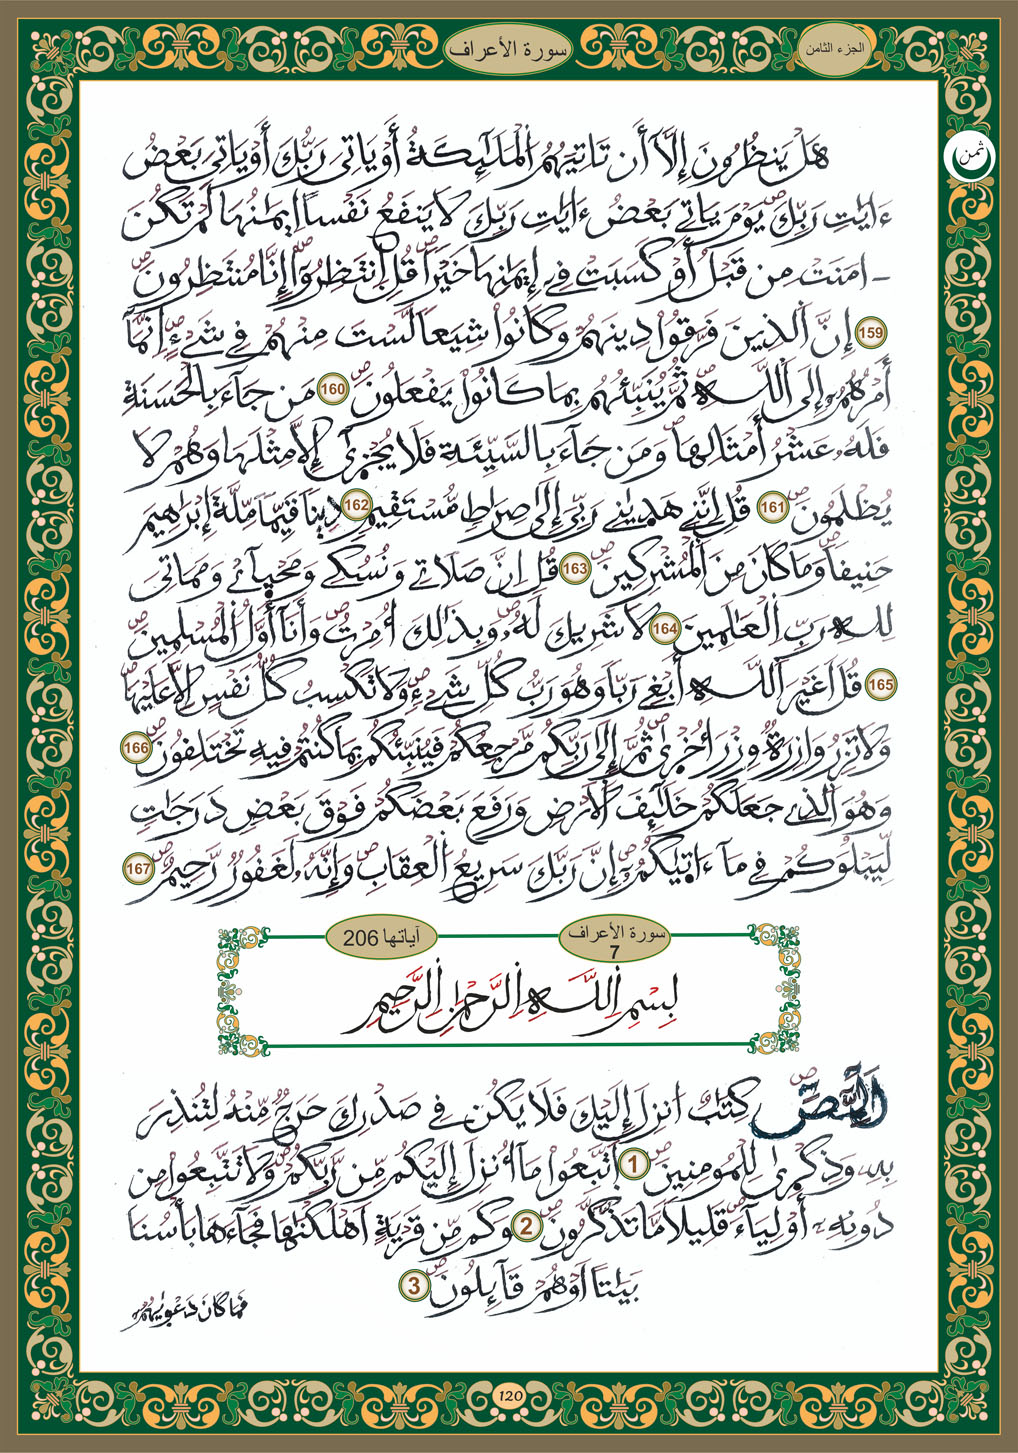 سورة الأعراف
الجزء الثامن
ثمن
هَلْ يَنظُرُونَ إِلَّآ أَن تَاتِيَهُمُ الْمَلَٰٓئِكَةُ أَوْ يَاتِيَ رَبُّكَ أَوْ يَاتِيَ بَعْضُ
ءَايَٰتِ رَبِّكَ يَوْمَ يَاتِے بَعْضُ ءَايَٰتِ رَبِّكَ لَا يَنفَعُ نَفْساً اِيمَٰنُهَا لَمْ تَكُنَ
ـ امَنَتْ مِن قَبْلُ أَوْ كَسَبَتْ فِےٓ إِيمَٰنِهَا خَيْراً قُلِ اِنتَظِرُوٓاْ إِنَّا مُنتَظِرُونَ
159 إِنَّ اَلذِينَ فَرَّقُواْ دِينَهُمْ وَكَانُواْ شِيَعاً لَّسْتَ مِنْهُمْ فِے شَےْءٍ اِنَّمَآ
أَمْرُهُمُۥٓ إِلَى اَللَّهِ ثُمَّ يُنَبِّئُهُم بِمَا كَانُواْ يَفْعَلُونَ 160 مَن جَآءَ بِالْحَسَنَةِ
فَلَهُۥ عَشْرُ أَمْثَالِهَا وَمَن جَآءَ بِالسَّيِّئَةِ فَلَا يُجْزَىٰٓ إِلَّا مِثْلَهَا وَهُمْ لَا
يُظْلَمُونَ 161 قُلِ اِنَّنِے هَدَىٰنِے رَبِّيَ إِلَىٰ صِرَاطٍ مُّسْتَقِيمٍ 162 دِيناً قَيِّماً مِّلَّةَ إِبْرَٰهِيمَ
حَنِيفاً وَمَا كَانَ مِنَ اَلْمُشْرِكِينَ 163 قُلِ اِنَّ صَلَاتِے وَنُسُكِے وَمَحْيِآےْ وَمَمَاتِيَ
لِلهِ رَبِّ اِلْعَٰلَمِينَ 164 لَا شَرِيكَ لَهُۥ وَبِذَٰلِكَ أُمِرْتُ وَأَنَآ أَوَّلُ اُلْمُسْلِمِينَ
165 قُلَ اَغَيْرَ اَللَّهِ أَبْغِے رَبّاً وَهُوَ رَبُّ كُلِّ شَےْءٍ وَلَا تَكْسِبُ كُلُّ نَفْسٍ اِلَّا عَلَيْهَا
وَلَا تَزِرُ وَازِرَةٌ وِزْرَ أُخْرَىٰ ثُمَّ إِلَىٰ رَبِّكُم مَّرْجِعُكُمْ فَيُنَبِّئُكُم بِمَا كُنتُمْ فِيهِ تَخْتَلِفُونَ 166
وَهُوَ اَلذِے جَعَلَكُمْ خَلَٰٓئِفَ اَلَارْضِ وَرَفَعَ بَعْضَكُمْ فَوْقَ بَعْضٍ دَرَجَٰتٍ
لِّيَبْلُوَكُمْ فِے مَآ ءَاتَيٰكُمُۥٓ إِنَّ رَبَّكَ سَرِيعُ اُلْعِقَابِ وَإِنَّهُۥ لَغَفُورٌ رَّحِيمٌ 167
سورة الأعراف 7
آياتها 206
بِسْمِ اِللَّهِ اِلرَّحْمَٰنِ اِلرَّحِيمِ
أَلَٓمِّٓصَٓ كِتَٰبٌ اُنزِلَ إِلَيْكَ فَلَا يَكُن فِے صَدْرِكَ حَرَجٌ مِّنْهُ لِتُنذِرَ
بِهِۦ وَذِكْرَىٰ لِلْمُومِنِينَ 1 اَتَّبِعُواْ مَآ أُنزِلَ إِلَيْكُم مِّن رَّبِّكُمْ وَلَا تَتَّبِعُواْ مِن
دُونِهِۦٓ أَوْلِيَآءَ قَلِيلاً مَّا تَذَّكَّرُونَ 2 وَكَم مِّن قَرْيَةٍ اَهْلَكْنَٰهَا فَجَآءَهَا بَأْسُنَا
بَيَٰتاً اَوْ هُمْ قَآئِلُونَ 3
فَمَا كَانَ دَعْوَيٰهُمُۥٓ
120